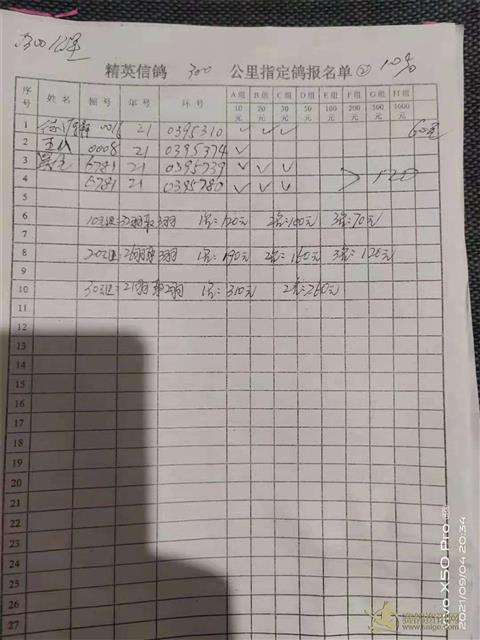 300公里
精英信鸽 300 公里指定鸽报名单② 10%
序号 姓名 棚号 年号 环号 A组10元 B组20元 C组30元 D组50元 E组100元 F组200元 G组500元 H组1000元
1 0016 21 0395310 ✓ ✓ ✓ 60元
2 0008 21 0395374 ✓
3 6781 21 0395739 ✓ ✓ ✓
4 6781 21 0395780 ✓ ✓ ✓ > 120
5
6 10元组: 3羽 1名=120元 2名=100元 3名=70元
7
8 20元组: 3羽 1名=190元 2名=160元 3名=120元
9
10 30元组: 2羽 1名=310元 2名=260元
11
12
13
14
15
16
17
18
19
20
21
22
23
24
25
26
27
vivo X50 Pro
2021/09/04 20:34
www.saige.com